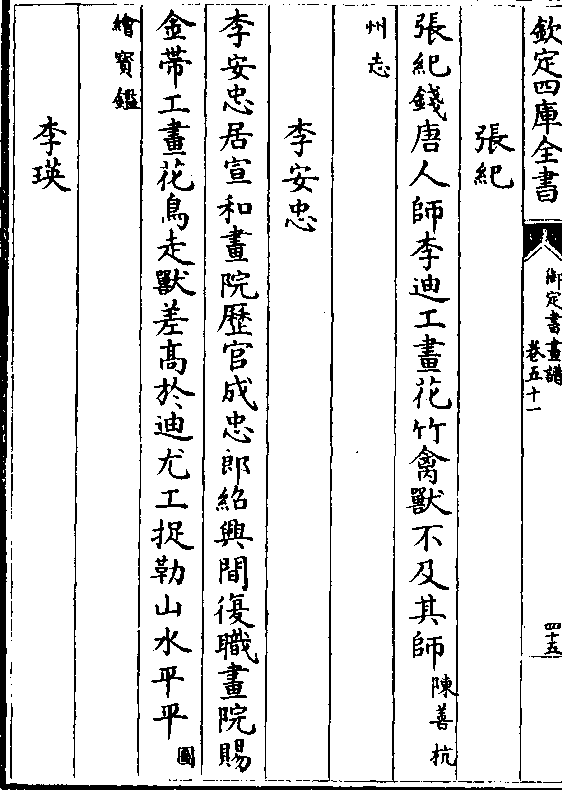 欽定四庫全書
御定書畫譜
卷五十一
四十五
張紀
張紀錢唐人師李迪工畫花竹禽獸不及其師陳善杭
州志
李安忠
李安忠居宣和畫院歷官成忠郎紹興間復職畫院賜
金帶工畫花鳥走獸差高於迪尤工捉勒山水平平圖
繪寳鑑
李瑛